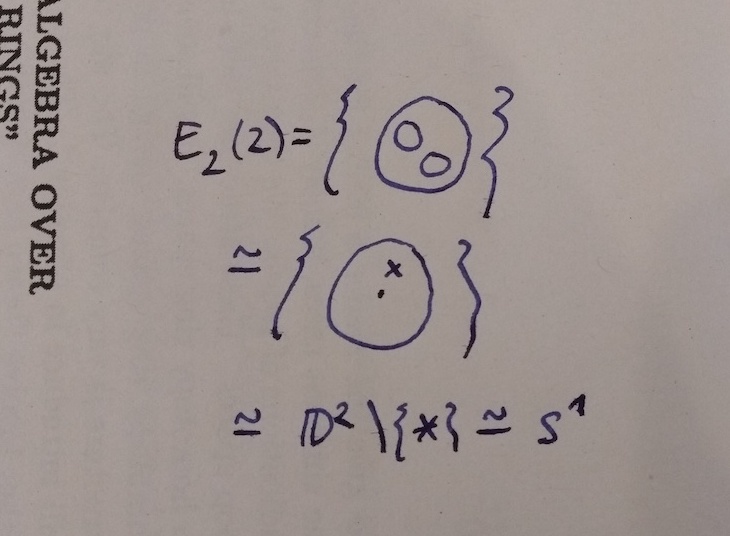 ALGEBRA OVER
RINGS”
E₂(2)={ }
≃ { x . }
≃ D² \ {*} ≃ S¹